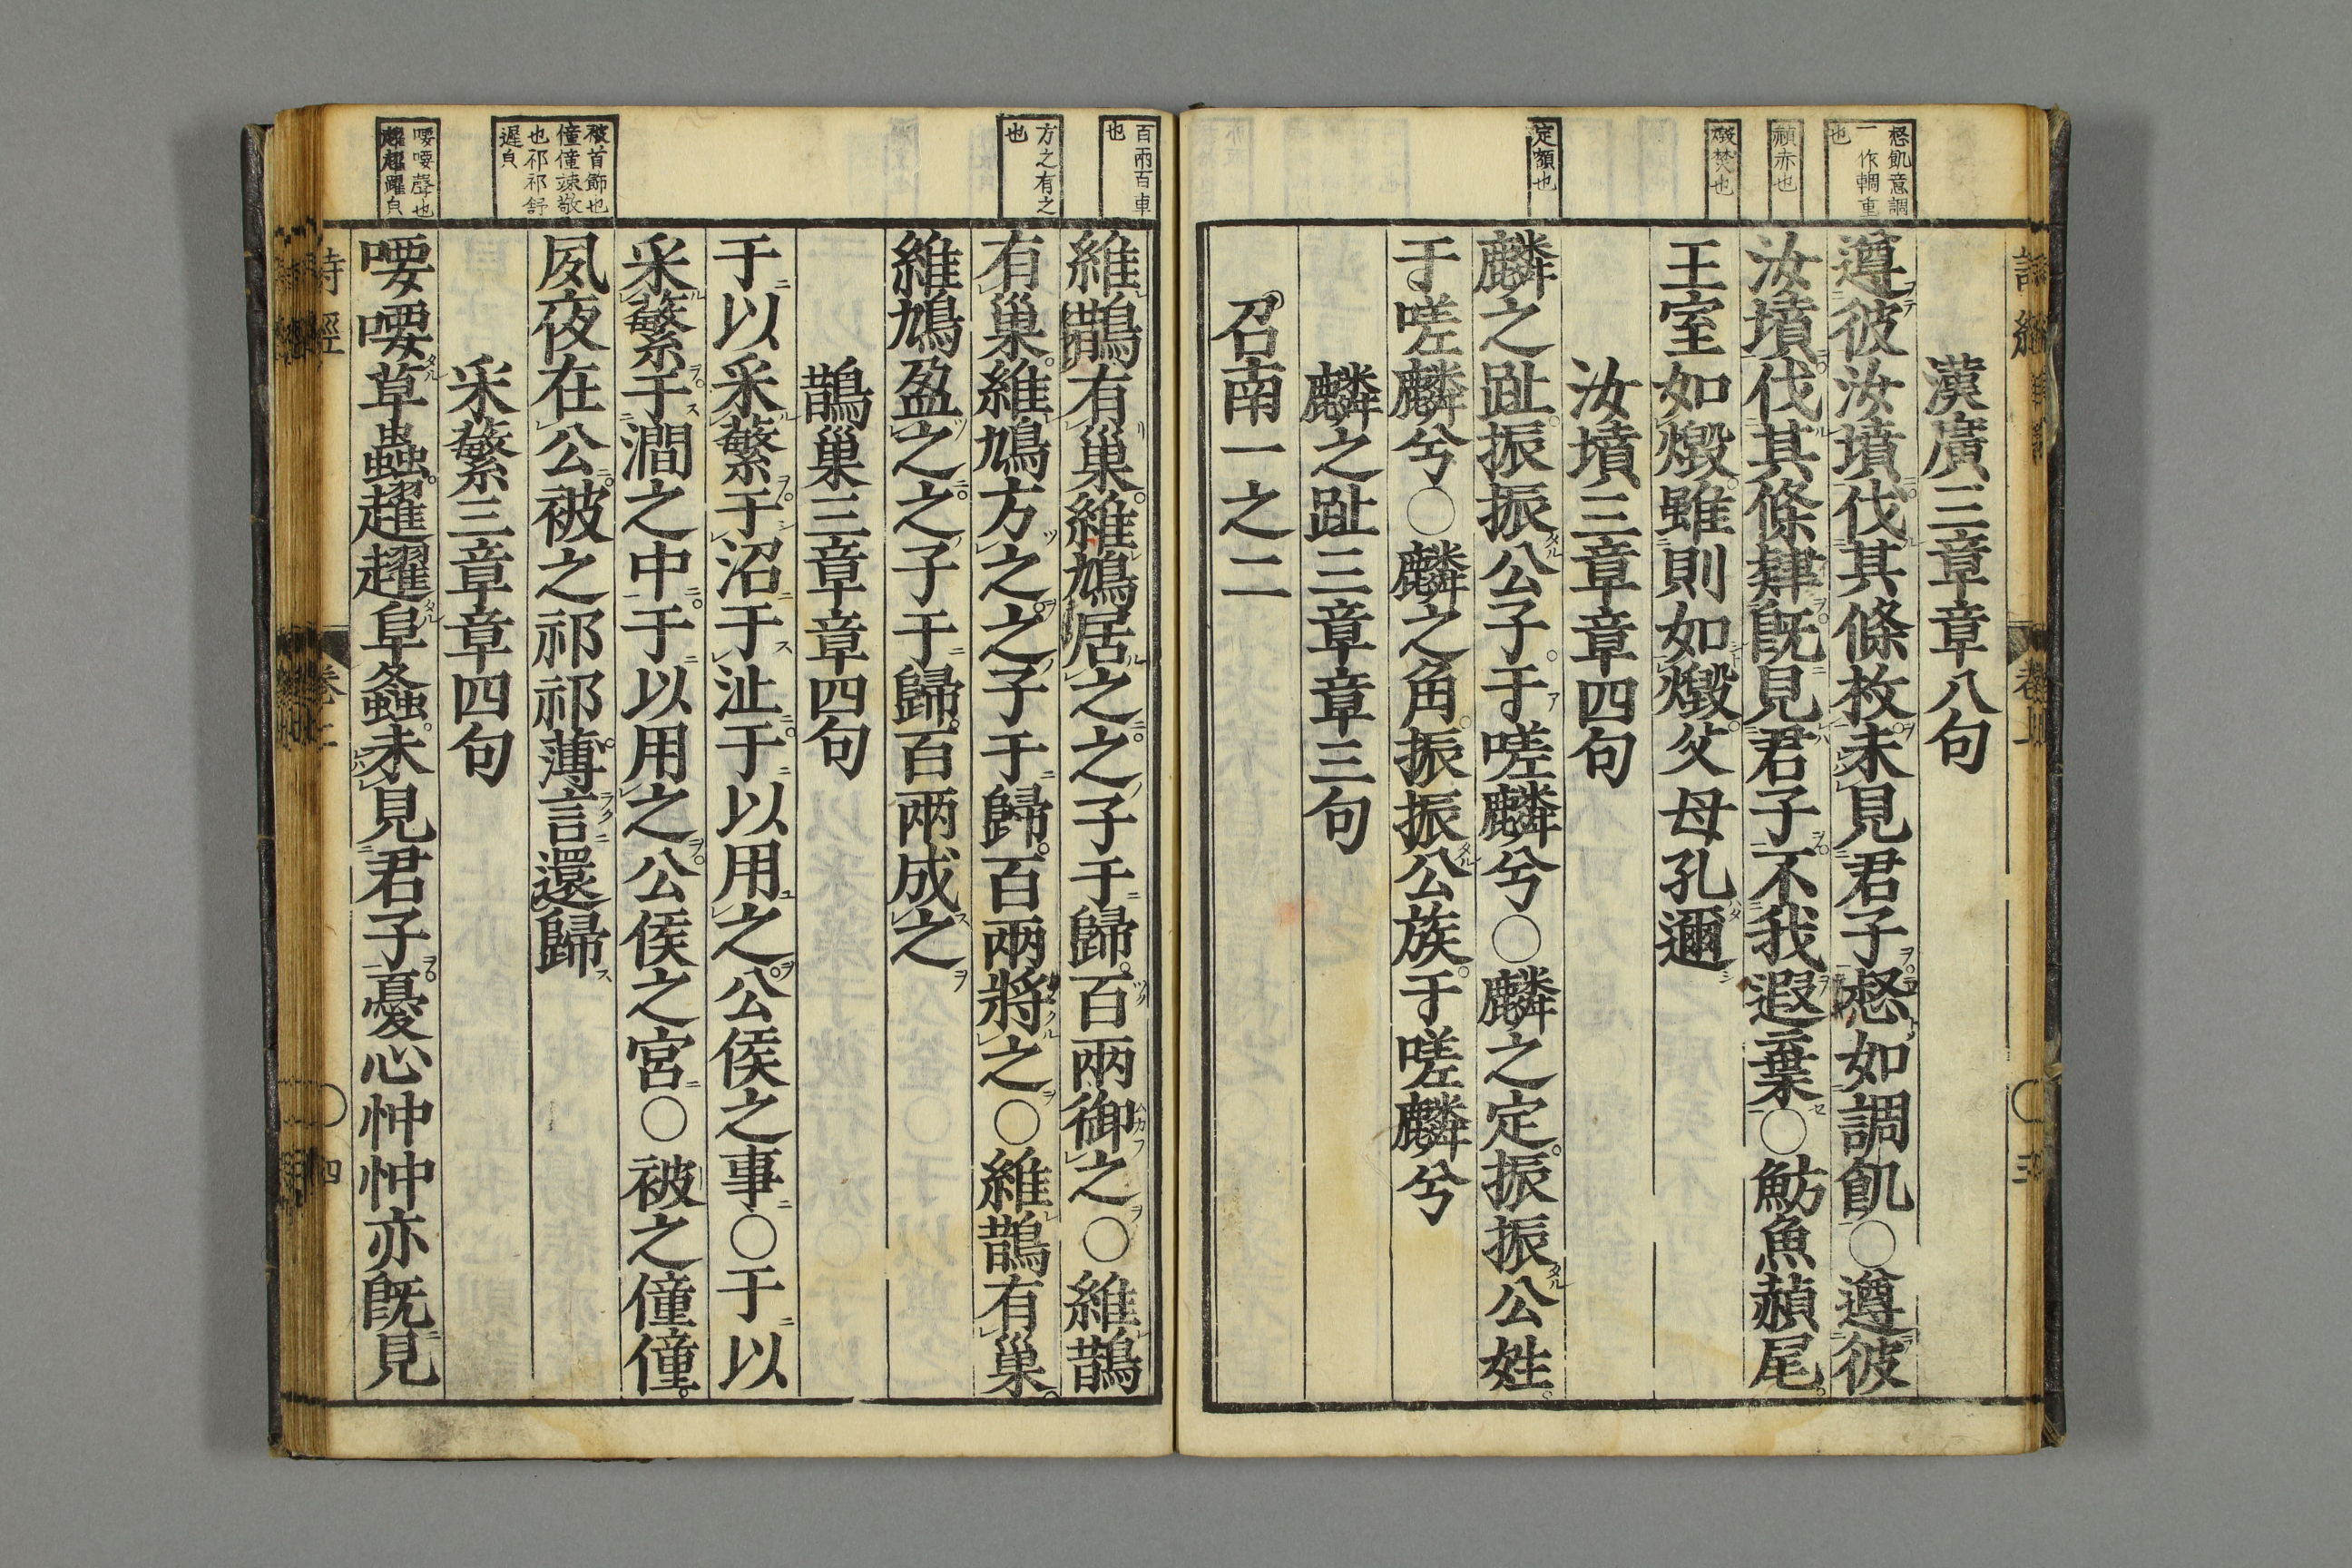 惄飢意調
一作輖重
也
赬赤也
燬焚也
定額也
漢廣三章章八句
遵彼汝墳伐其條枚未見君子惄如調飢○遵彼
汝墳伐其條肄既見君子不我遐棄○魴魚赬尾
王室如燬雖則如燬父母孔邇
汝墳三章章四句
麟之趾振振公子于嗟麟兮○麟之定振振公姓
于嗟麟兮○麟之角振振公族于嗟麟兮
麟之趾三章章三句
召南一之二
百兩百車
也
方之有之
也
被首飾也
僮僮竦敬
也祁祁舒
遲皃
喓喓聲也
趯趯躍皃
維鵲有巢維鳩居之之子于歸百兩御之○維鵲
有巢維鳩方之之子于歸百兩將之○維鵲有巢
維鳩盈之之子于歸百兩成之
鵲巢三章章四句
于以采蘩于沼于沚于以用之公侯之事○于以
采蘩于澗之中于以用之公侯之宮○被之僮僮
夙夜在公被之祁祁薄言還歸
采蘩三章章四句
喓喓草蟲趯趯阜螽未見君子憂心忡忡亦既見
詩經
卷一
○四